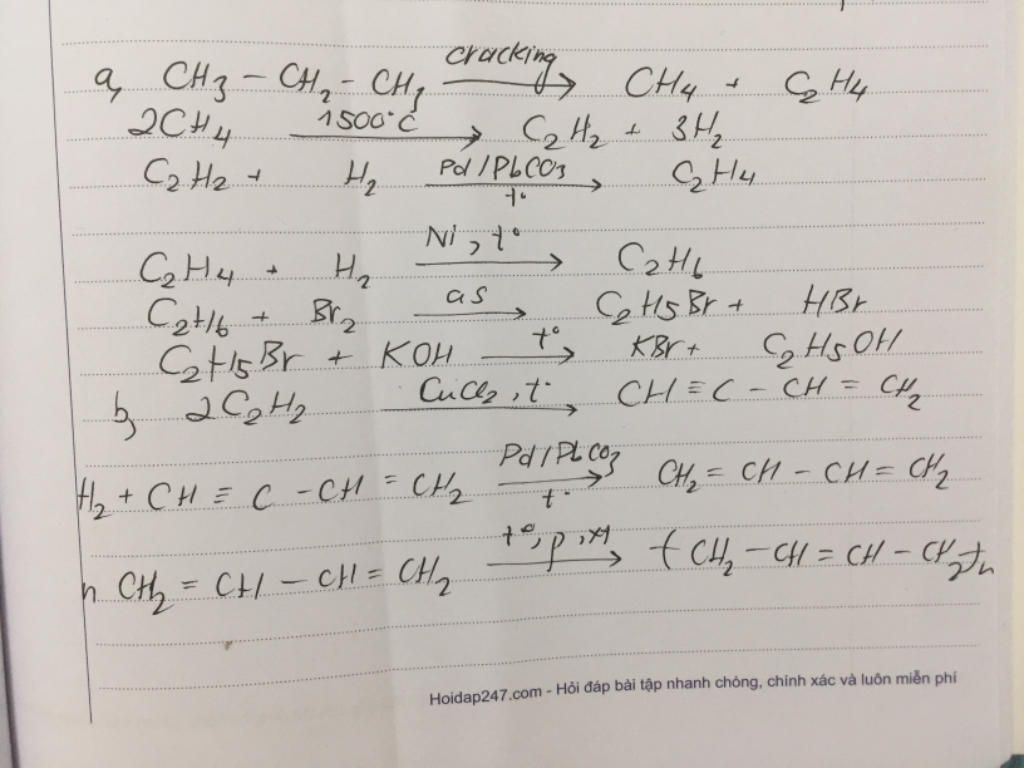 a, CH3 - CH2 - CH3 cracking → CH4 + C2H4
2CH4 1500°C → C2H2 + 3H2
C2H2 + H2 Pd/PbCO3 t° → C2H4
C2H4 + H2 Ni, t° → C2H6
C2H6 + Br2 as → C2H5Br + HBr
C2H5Br + KOH t° → KBr + C2H5OH
b, 2C2H2 CuCl2, t° → CH ≡ C - CH = CH2
H2 + CH ≡ C - CH = CH2 Pd/PbCO3 t° → CH2 = CH - CH = CH2
n CH2 = CH - CH = CH2 t°, p, xt → (CH2 - CH = CH - CH2)n
Hoidap247.com - Hỏi đáp bài tập nhanh chóng, chính xác và luôn miễn phí